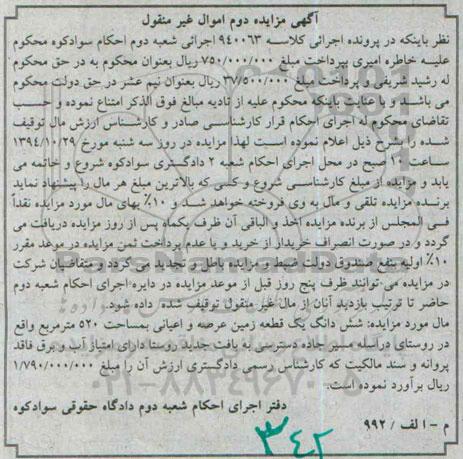 آگهی مزایده دوم اموال غیر منقول
نظر باینکه در پرونده اجرائی کلاسه ۹۴۰۰۶۳ اجرائی شعبه دوم احکام سوادکوه محکوم
علیه خاطره امیری بپرداخت مبلغ ۷۵۰/۰۰۰/۰۰۰ ریال بعنوان محکوم به در حق محکوم
له رشید شریفی و پرداخت مبلغ ۳۷/۵۰۰/۰۰۰ ریال بعنوان نیم عشر در حق دولت محکوم
می باشد و با عنایت باینکه محکوم علیه از تادیه مبالغ فوق الذکر امتناع نموده و حسب
تقاضای محکوم له اجرای احکام قرار کارشناسی صادر و کارشناس ارزش مال توقیف
شده را بشرح ذیل اعلام نموده است لهذا مزایده در روز سه شنبه مورخ ۱۳۹۴/۱۰/۲۹
ساعت ۱۰ صبح در محل اجرای احکام شعبه ۲ دادگستری سوادکوه شروع و خاتمه می
یابد و مزایده از مبلغ کارشناسی شروع و کسی که بالاترین مبلغ هر مال را پیشنهاد نماید
برنده مزایده تلقی و مال به وی فروخته خواهد شد و ۱۰٪ بهای مال مورد مزایده نقداً
فی المجلس از برنده مزایده اخذ و الباقی آن ظرف یکماه پس از روز مزایده دریافت می
گردد و در صورت انصراف خریدار از خرید و یا عدم پرداخت ثمن مزایده در موعد مقرر
۱۰٪ اولیه بنفع صندوق دولت ضبط و مزایده باطل و تجدید می گردد و متقاضیان شرکت
در مزایده می توانند ظرف پنج روز قبل از موعد مزایده در دایره اجرای احکام شعبه دوم
حاضر تا ترتیب بازدید آنان از مال غیر منقول توقیف شده داده شود.
مال مورد مزایده: شش دانگ یک قطعه زمین عرصه و اعیانی بمساحت ۵۲۰ مترمربع واقع
در روستای دراسله مسیر جاده دسترسی به بافت جدید روستا دارای امتیاز آب و برق فاقد
پروانه و سند مالکیت که کارشناس رسمی دادگستری ارزش آن را مبلغ ۱/۷۹۰/۰۰۰/۰۰۰
ریال برآورد نموده است.
دفتر اجرای احکام شعبه دوم دادگاه حقوقی سوادکوه
م - الف / ۹۹۲
۳۴۲
ParsNamadData
۰۲۱-۸۸۳۴۹۶۷۰